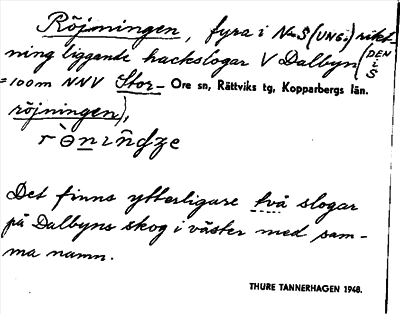 Röjningen, fyra i N-S (UNG.) rikt-
ning liggande hackslogar V Dalbyn (DEN i S
= 100m NNV Stor- Ore sn, Rättviks tg, Kopparbergs län.
röjningen),
Det finns ytterligare två slogar
på Dalbyns skog i väster med sam-
ma namn.
THURE TANNERHAGEN 1948.